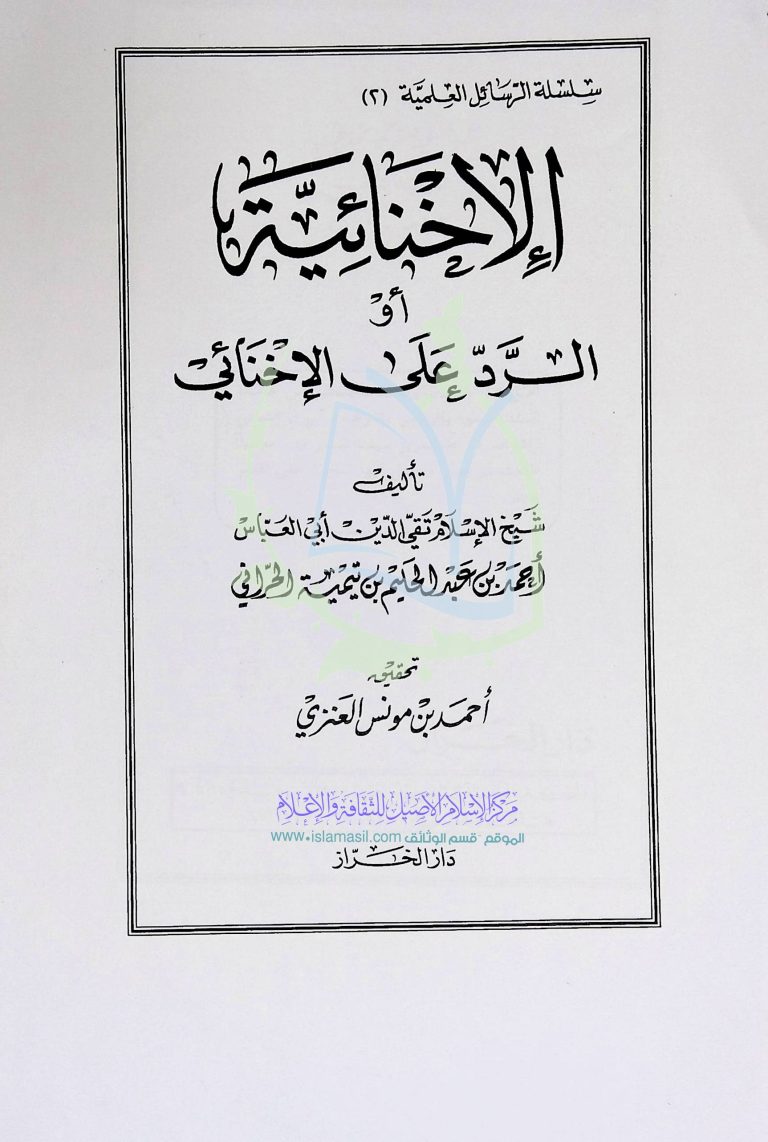 سِلسلة الرّسَائِل العِلميَّة (٢)
الإِخْنَائِيَّة
أَوْ
الرَّدّ عَلَى الإِخْنَائِيْ
تأليف
شَيْخ الإِسْلَام تَقيّ الدّين أبي العَبّاس
أَحمَد بْن عَبْد الحَليم بن تيمية الحَرّاني
تحقيق
أحمد بْن مونس العَنزي
مركز الإسلام الأصيل للثقافة والإعلام
الموقع - قسم الوثائق www.islamasil.com
دَار الخَرَّاز